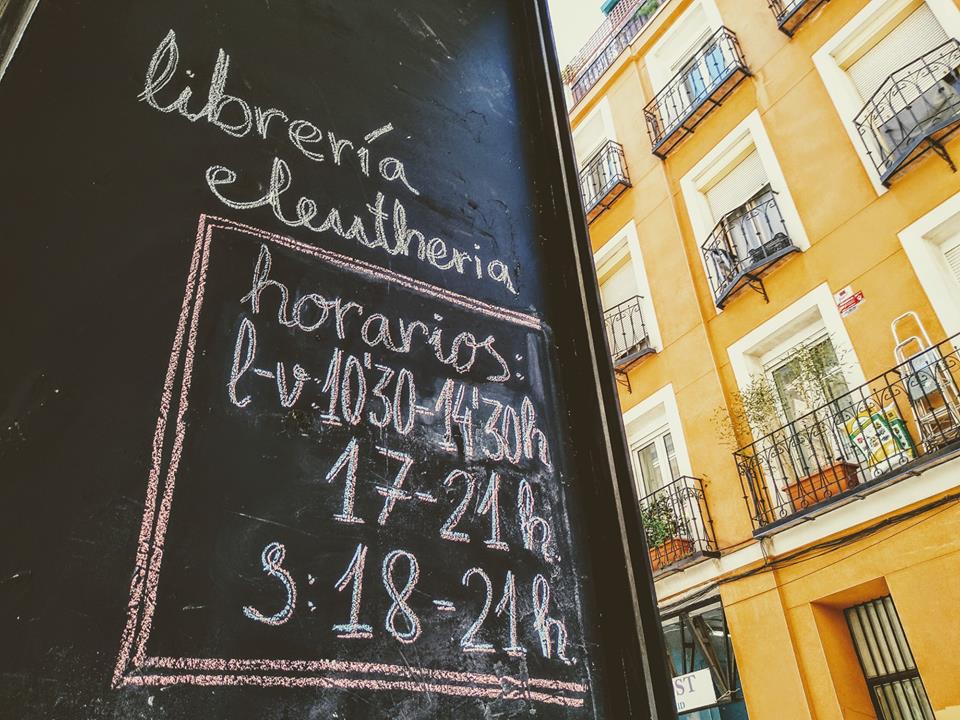 librería
eleutheria
horarios:
l-v: 10'30-14'30h
17-21h
S: 18-21h.
ST